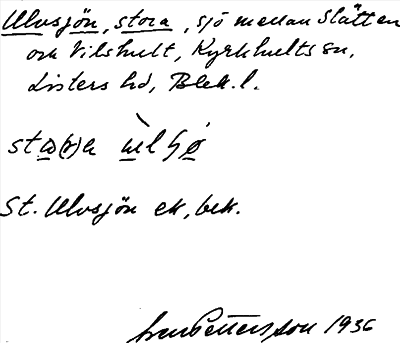 Ulvsjön, stora, sjö mellan Slätten
och Vilshult, Kyrkhults sn,
Listers hd, Blek. l.
St. Ulvsjön ek, bek.
Pettersson 1936